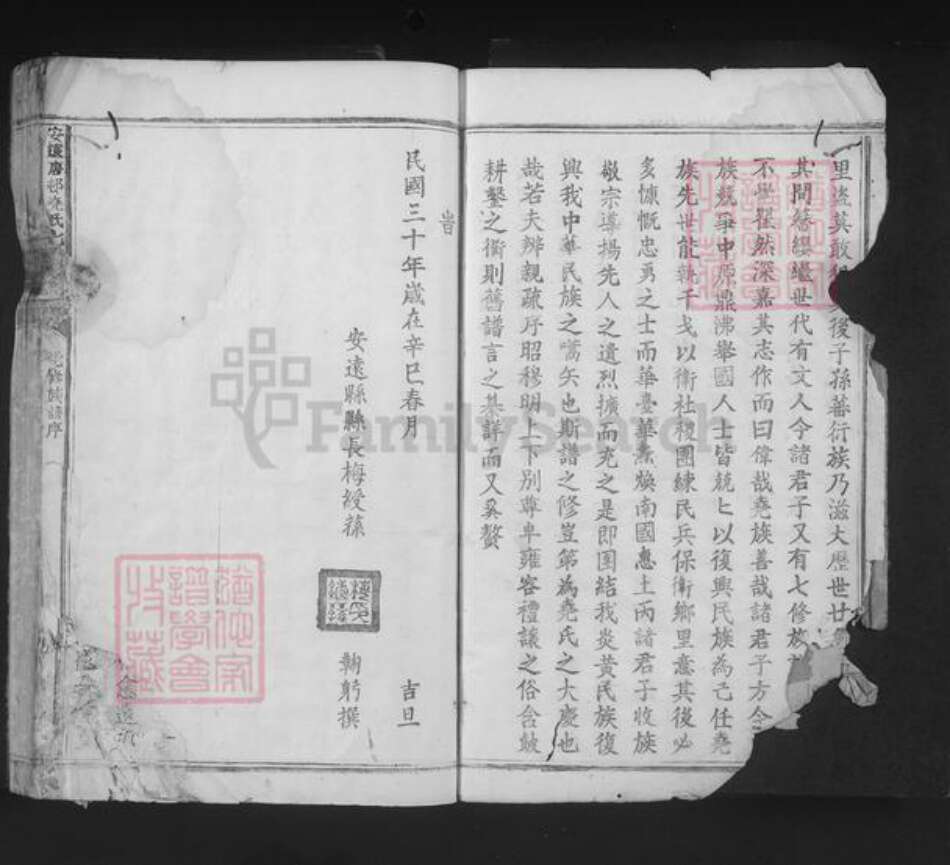 里盜莫敢 後子孫蕃衍族乃滋大歷世廿
其間簪纓繼世代有文人今諸君子又有七修族
不學瞿然深嘉其志作而曰偉哉堯族善哉諸君子方今
族競爭中原鼎沸舉國人士皆兢匕以復興民族為己任堯
族先世能執干戈以衛社稷團練民兵保衛鄉里意其後必
多慷慨忠勇之士而華臺華 煥南國 土丙諸君子收族
敬宗導揚先人之遺烈擴而充之是即團結我炎黃民族復
興我中華民族之嚆矢也斯譜之修豈第為堯氏之大慶也
哉若夫辨親疏序昭穆明上下別尊卑雍容禮讓之俗含鼓
耕鑿之衢則舊譜言之綦詳而又奚贅
旹
民國三十年歲在辛巳春月 吉旦
安遠縣縣長梅綬蓀 鞠躬撰
安遠 堯氏 修族譜序
譜學會
收藏
FamilySearch